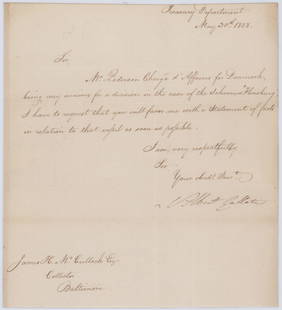 Treasury Department
May 30th 1808.
Sir
Mr. Pederson Chargé d'Affaires for Denmark,
being very anxious for a decision in the case of the Schooner
I have to request that you will favor me with a Statement of facts
in relation to that vessel as soon as possible.
I am very respectfully
Sir
Your obedt. Servt.
Albert Gallatin
James H. McCulloch Esq.
Collector
Baltimore